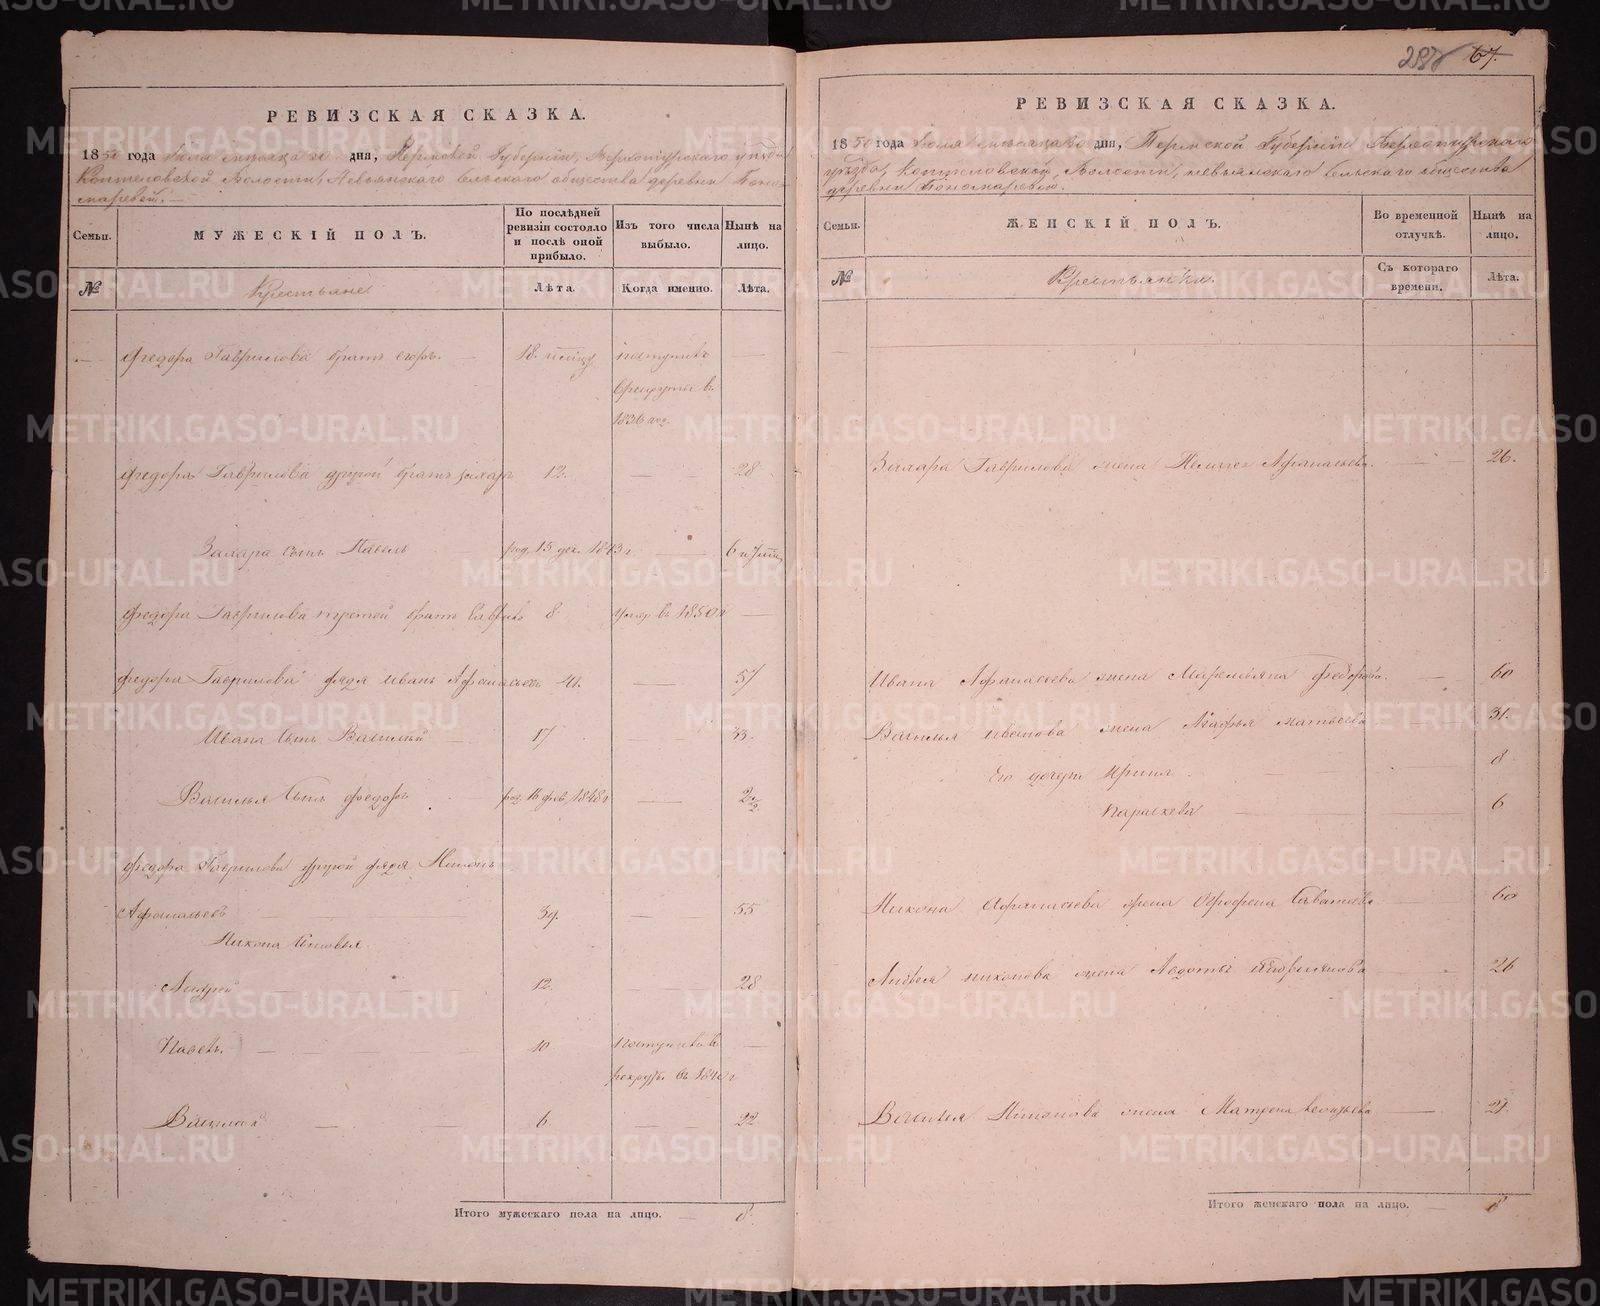 293 67.
РЕВИЗСКАЯ СКАЗКА.
1850 года Июля месяца 20 дня, Пермской Губернии, Верхотурскаго уезда
Коптеловской Волости, Невьянскаго Сельскаго общества деревни Поно-
маревой.
Семьи. МУЖЕСКІЙ ПОЛЪ. По послѣдней ревизіи состояло и послѣ оной прибыло. Изъ того числа выбыло. Нынѣ на лицо.
№ Крестьяне Лѣта. Когда именно. Лѣта.
Федора Гаврилова братъ Егоръ. 18. поступилъ
в рекруты въ
1836 год.
Федора Гаврилова другой братъ Захаръ 12. 28
Захара сынъ Павелъ род. 15 дек. 1843 г. 6 и 7 мц
Федора Гаврилова третей братъ 8 умер въ 1850 г
Федора Гаврилова дядя Иванъ Афонасьевъ 41. 57
Ивана сынъ Василий 17 33.
Василья сынъ Федоръ род. 16 фев. 1848 г 2 1/2
Федора Гаврилова другой дядя Никонъ
Афонасьевъ 39. 55
Никона сыновья
Андрей 12. 28
Павелъ. 10 поступилъ в
рекруты въ 1840 г
Василий 6. 22
Итого мужескаго пола на лицо. 8.
РЕВИЗСКАЯ СКАЗКА.
1850 года Июля месяца 20 дня, Пермской Губернии Верхотурскаго
уезда, Коптеловской, Волости, Невьянскаго Сельскаго общества
деревни Пономаревой.
Семьи. ЖЕНСКІЙ ПОЛЪ. Во временной отлучкѣ. Нынѣ на лицо.
№ Крестьянки Съ котораго времени. Лѣта.
Захара Гаврилова жена Афанасьева. 26.
Ивана Афанасьева жена Маремьяна Федорова. 60
Василья Иванова жена Агафья Матвеева 31.
Его дочери Ирина. 8
Параскева 6
Никона Афанасьева жена Офросенья Саватеева 60
Андрея Никонова жена Авдотья 26
Василья Никонова жена Матрена 21.
Итого женскаго пола на лицо. 8
METRIKI.GASO-URAL.RU